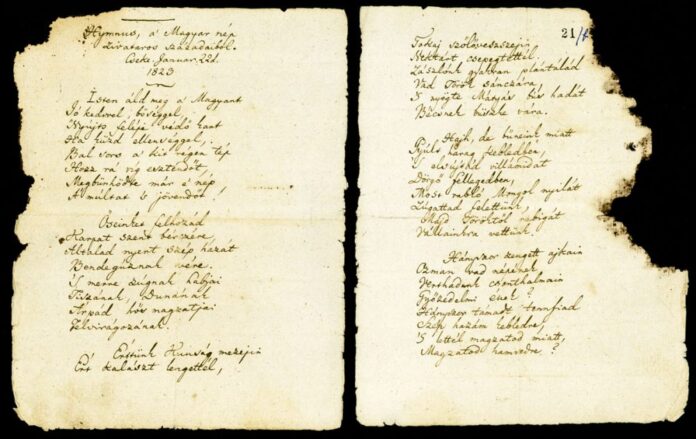 Hymnus, a' Magyar nép
zivataros századaiból.
Cseke Januar. 22d.
1823
Isten áld meg a' Magyart
Jó kedvvel, bőséggel,
Nyújts feléje védő kart
Ha küzd ellenséggel;
Bal sors a' kit régen tép
Hozz rá víg esztendőt,
Megbűnhődte már e' nép
A' múltat 's jövendőt!
Őseinket felhozád
Kárpát szent bérczére,
Általad nyert szép hazát
Bendegúznak vére.
'S merre zúgnak habjai
Tiszának, Dunának
Árpád hős magzatjai
Felvirágozának.
Értünk Kunság mezein
Ért kalászt lengettél,
21
Tokaj szőlővesszein
Nektárt csepegtettél.
Zászlónk gyakran plántálád
Vad Török sánczára,
'S nyögte Mátyás bús hadát
Bécsnek büszke vára.
Hajh, de bűneink miatt
Gyúlt harag kebledben,
'S elsújtád villámidat
Dörgő fellegedben,
Most rabló Mongol nyilát
Zúgattad felettünk,
Majd Töröktől rabigát
Vállainkra vettünk.
Hányszor zengett ajkain
Ozman vad népének
Vert hadunk csonthalmain
Győzedelmi ének?
Hányszor támadt tennfiad
Szép hazám kebledre,
'S lettél magzatod miatt,
Magzatod hamvedre?